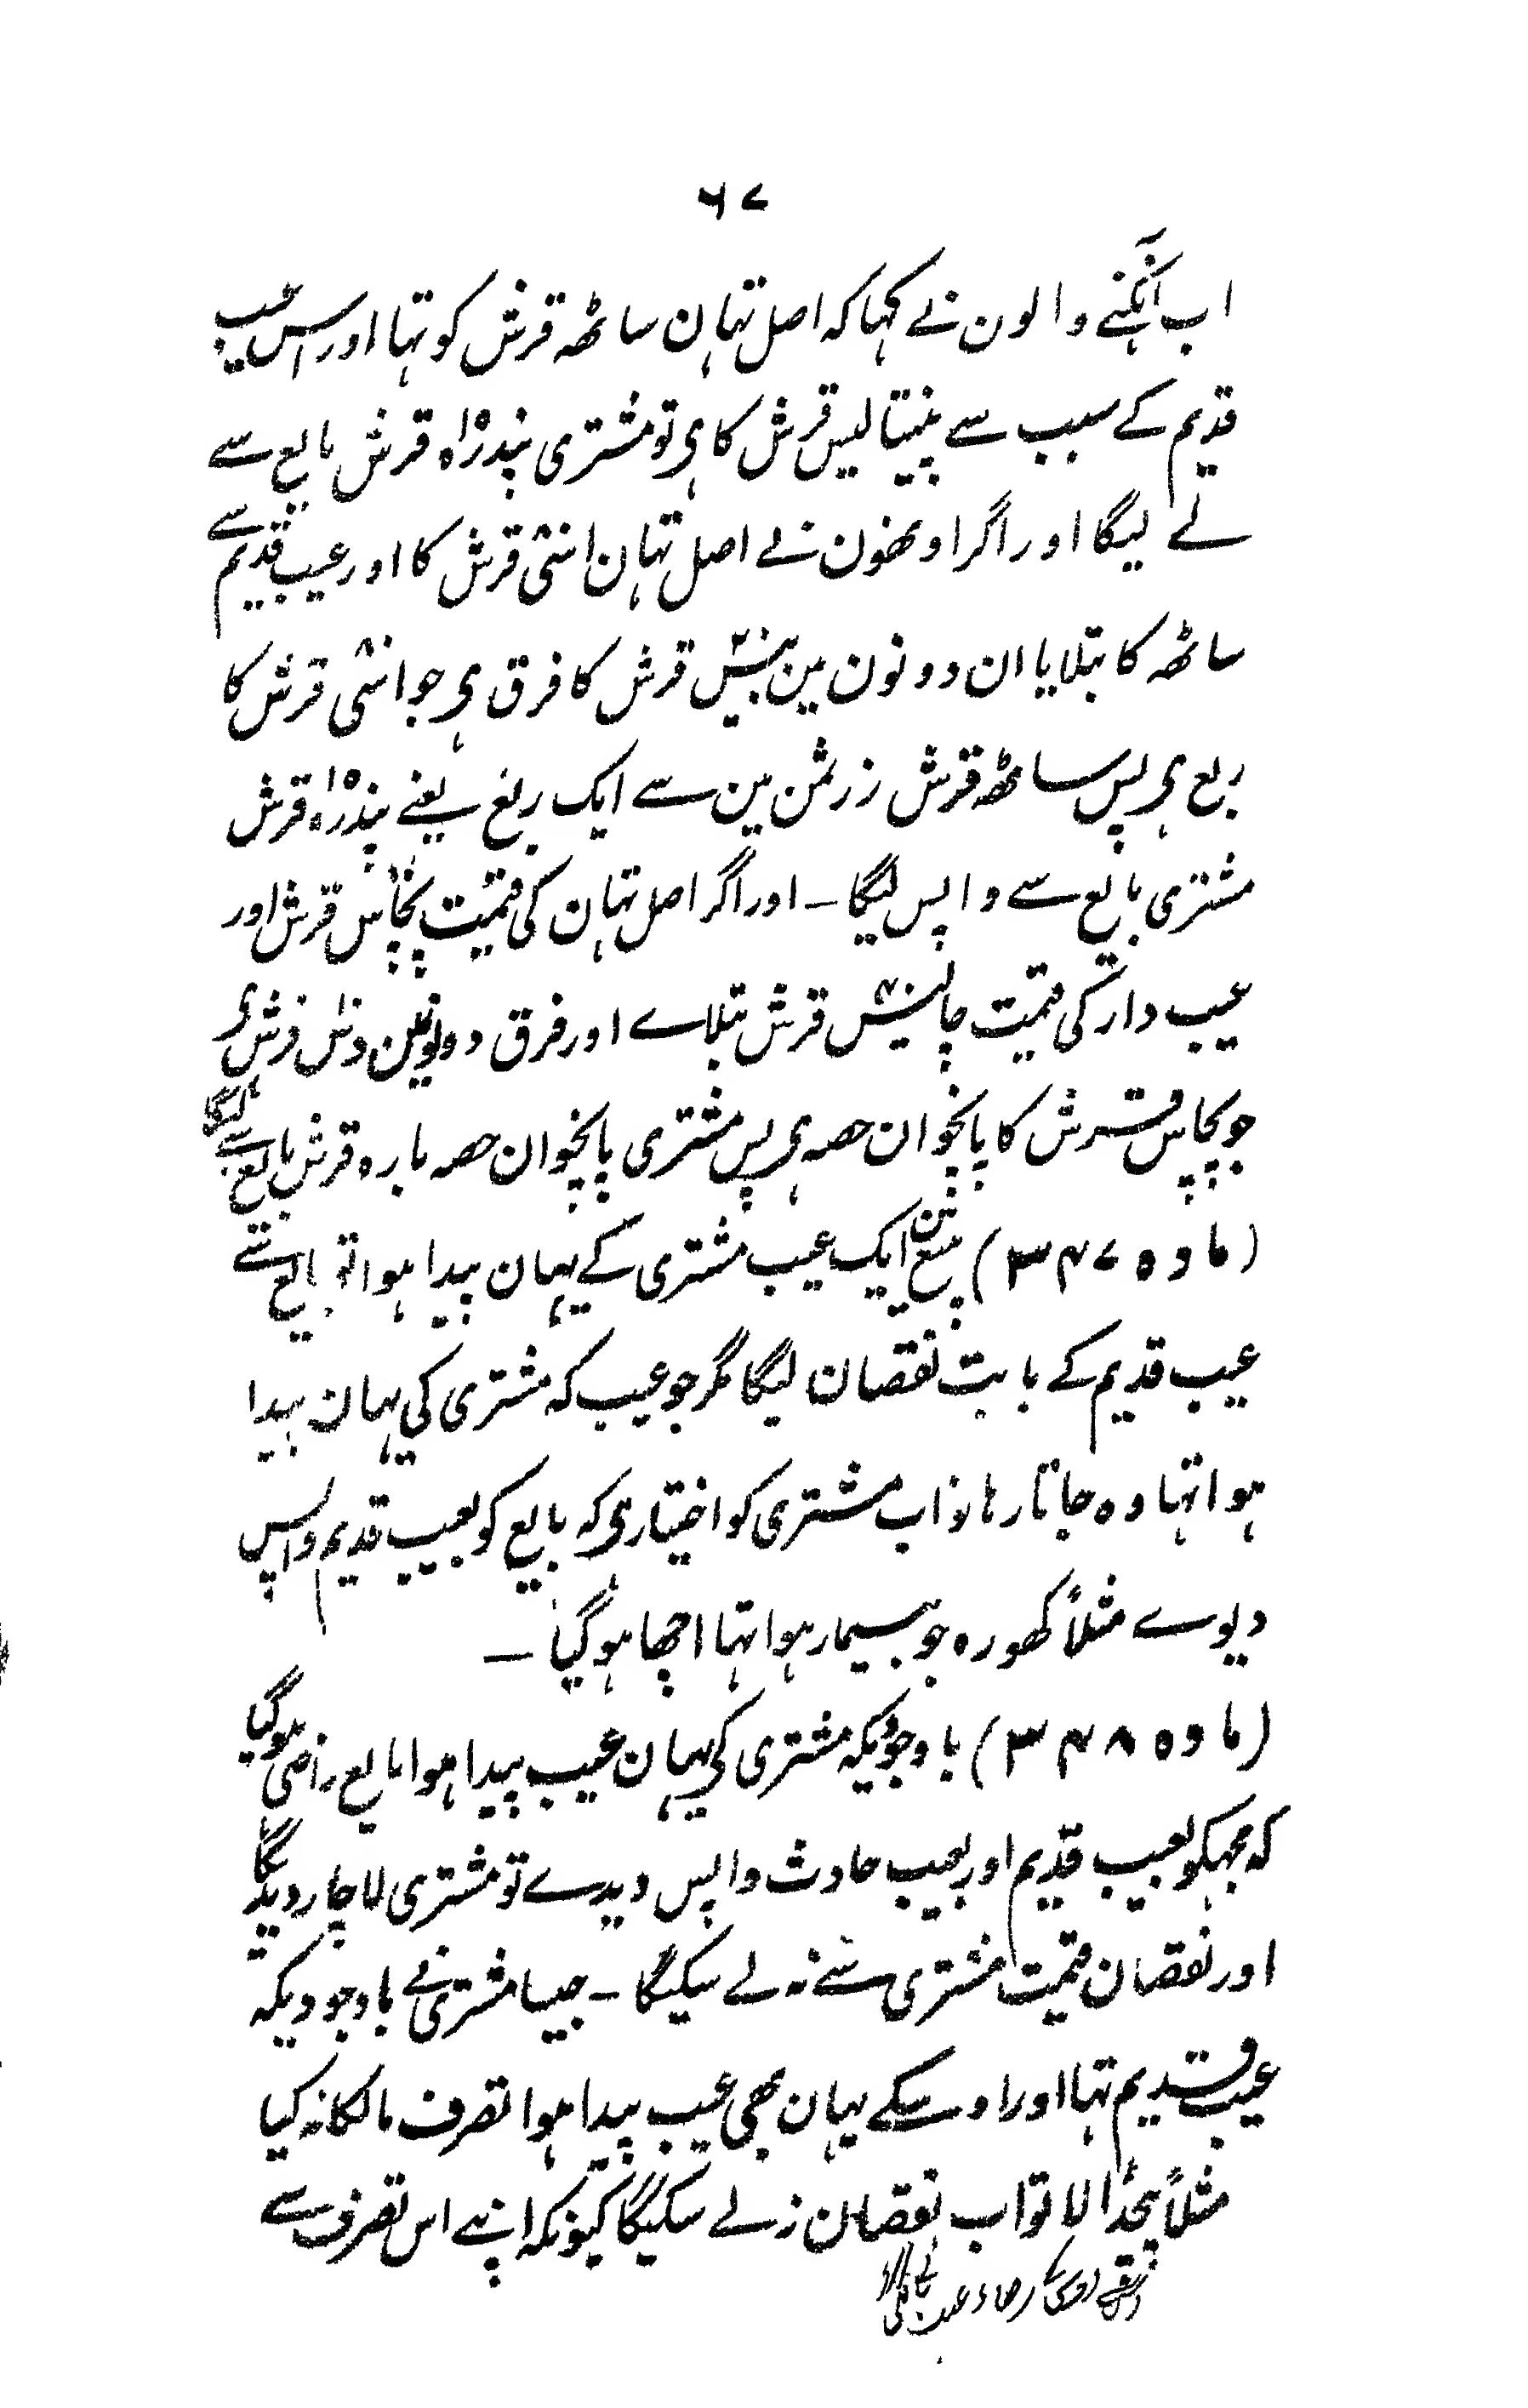 ۶۷
اب آنکنے والون نے کہا کہ اصل تہان ساٹھہ قرش کو تہا اور اس عیب
قدیم کے سبب سے پنیتالیس قرش کا ہی تو مشتری پندرہ قرش بایع سے
لے لیگا اور اگر اوٹھون نے اصل تہان اسّی قرش کا اور عیب قدیم سے
ساٹھہ کا بتلایا ان دونون مین بیس قرش کا فرق ہی جو اسّی قرش کا
ربع ہی پس ساٹھہ قرش زر ثمن مین سے ایک ربع یعنے پندرہ قرش
مشتری بایع سے واپس لیگا ـ اور اگر اصل تہان کی قمیت پچاس قرش اور
عیب دار کی قمیت چالیس قرش بتلاے اور فرق دونون مین دس قرش ہی
جو پچاس قرش کا پانچوان حصہ ہی پس مشتری پانچوان حصہ بارہ قرش بایع سے لیگا
(مادہ ۳۴۷) مبیع مین ایک عیب مشتری کے یہان پیدا ہوا تو بایع سے
عیب قدیم کے بابت نقصان لیگا مگر جو عیب کہ مشتری کی یہان پیدا
ہوا تہا وہ جاتا رہا تو اب مشتری کو اختیار ہی کہ بایع کو بعیب قدیم واپس
دیوے مثلاً گھورہ جو بیمار ہوا تہا اچھا ہو گیا ـ
(مادہ ۳۴۸) باوجودیکہ مشتری کی یہان عیب پیدا ہوا بایع راضی ہو گیا
کہ مجہکو بعیب قدیم اور بعیب حادث واپس دیدے تو مشتری لاچار دیدیگا
اور نقصان قمیت مشتری سے نہ لے سکیگا ـ جیسا مشتری نے باوجودیکہ
عیب قدیم تہا اور اوسکے یہان بھی عیب پیدا ہوا تصرف مالکانہ کیا
مثلاً بیچڈالا تو اب نقصان نہ لے سکیگا کیونکہ اپنے اس تصرف سے